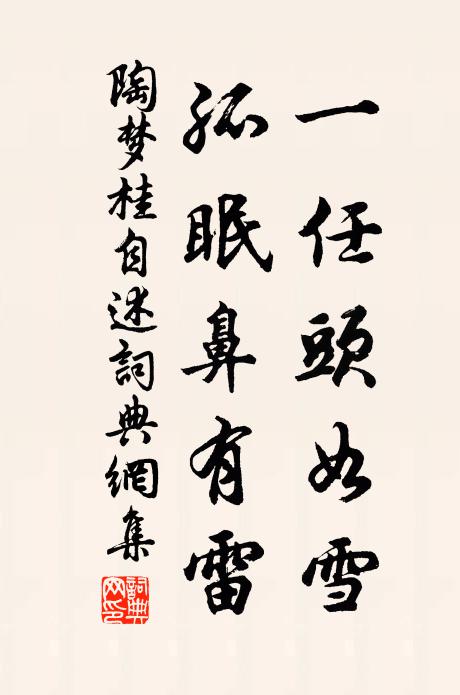 一任頭如雪
孤眠鼻有雷
陶梦桂自述詞典網集
詞典
网印